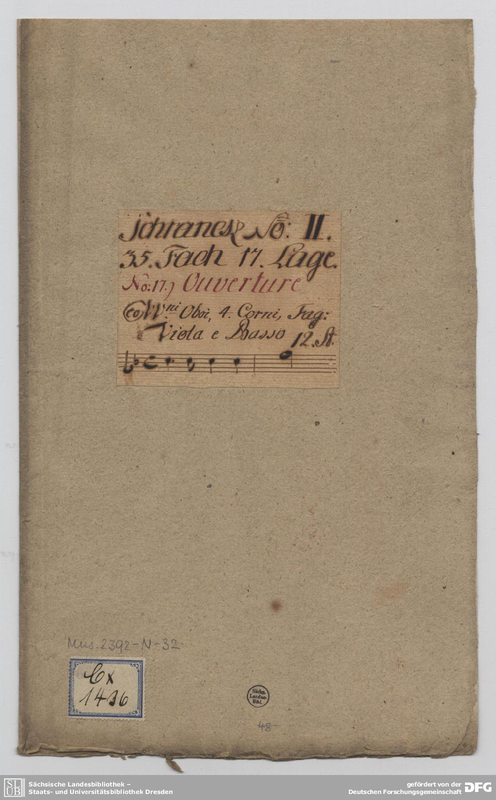 Schranck No: II.
35. Fach 17. Lage.
No: 17.) Ouverture
co VV.ni Oboi, 4. Corni, Fag:
Viola e Basso 12. St.
Mus. 2392-N-32
Cx
1436
Sächs.
Landes-
Bibl.
48
SLUB
Sächsische Landesbibliothek –
Staats- und Universitätsbibliothek Dresden
gefördert von der
Deutschen Forschungsgemeinschaft
DFG